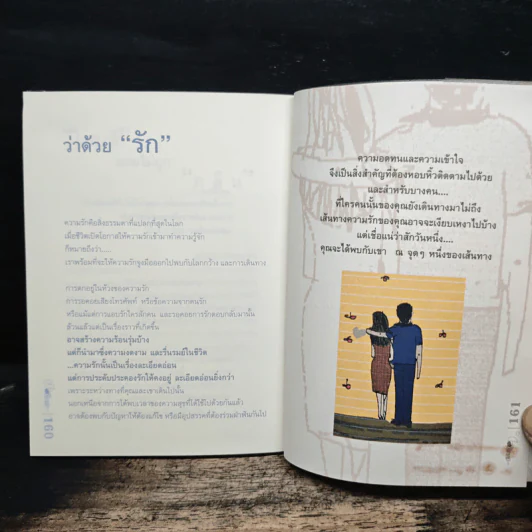 ว่าด้วย “รัก”
ความรักคือสิ่งธรรมดาที่แปลกที่สุดในโลก
เมื่อชีวิตเปิดโอกาสให้ความรักเข้ามาทำความรู้จัก
ก็หมายถึงว่า.....
เราพร้อมที่จะให้ความรักจูงมือออกไปพบกับโลกกว้าง และการเดินทาง
การตกอยู่ในห้วงของความรัก
การรอคอยเสียงโทรศัพท์ หรือข้อความจากคนรัก
หรือแม้แต่การแอบรักใครสักคน และรอคอยการรักตอบกลับมานั้น
ล้วนแล้วแต่เป็นเรื่องราวที่เกิดขึ้น
อาจสร้างความร้อนรุ่มบ้าง
แต่ก็นำมาซึ่งความงดงาม และรื่นรมย์ในชีวิต
...ความรักนั้นเป็นเรื่องละเอียดอ่อน
แต่การประคับประคองรักให้คงอยู่ ละเอียดอ่อนยิ่งกว่า
เพราะระหว่างทางที่คุณและเขาเดินไปนั้น
นอกเหนือจากการให้พบเวลาของความสุขที่ได้ใช้ไปด้วยกันแล้ว
อาจต้องพบกับปัญหาให้ต้องแก้ไข หรือมีอุปสรรคที่ต้องร่วมฝ่าฟันกันไป
160
ความอดทนและความเข้าใจ
จึงเป็นสิ่งสำคัญที่ต้องหอบหิ้วติดตามไปด้วย
และสำหรับบางคน....
ที่ใครคนนั้นของคุณยังเดินทางมาไม่ถึง
เส้นทางความรักของคุณอาจจะเงียบเหงาไปบ้าง
แต่เชื่อแน่ว่าสักวันหนึ่ง....
คุณจะได้พบกับเขา ณ จุดๆ หนึ่งของเส้นทาง
161